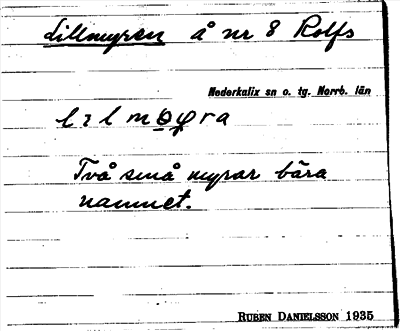 Lillmyren å nr 8 Rolfs
Nederkalix sn o. tg. Norrb. län
Två små myrar bära
namnet.
RUBEN DANIELSSON 1935